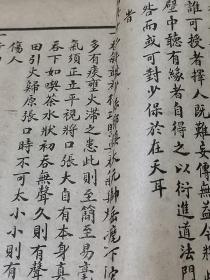 誰可授者擇人既難妄傳無益今將
壁中聽有緣者自得之以衍進道法門
皆而或可對少保於在天耳
者
多有痰壅火滯之患此則至簡至易
氣須正立平視將口張大自有本身真
吞下如喫茶水狀初吞無聲久則有聲
田引火歸原張口時不可太小小則有
傷人